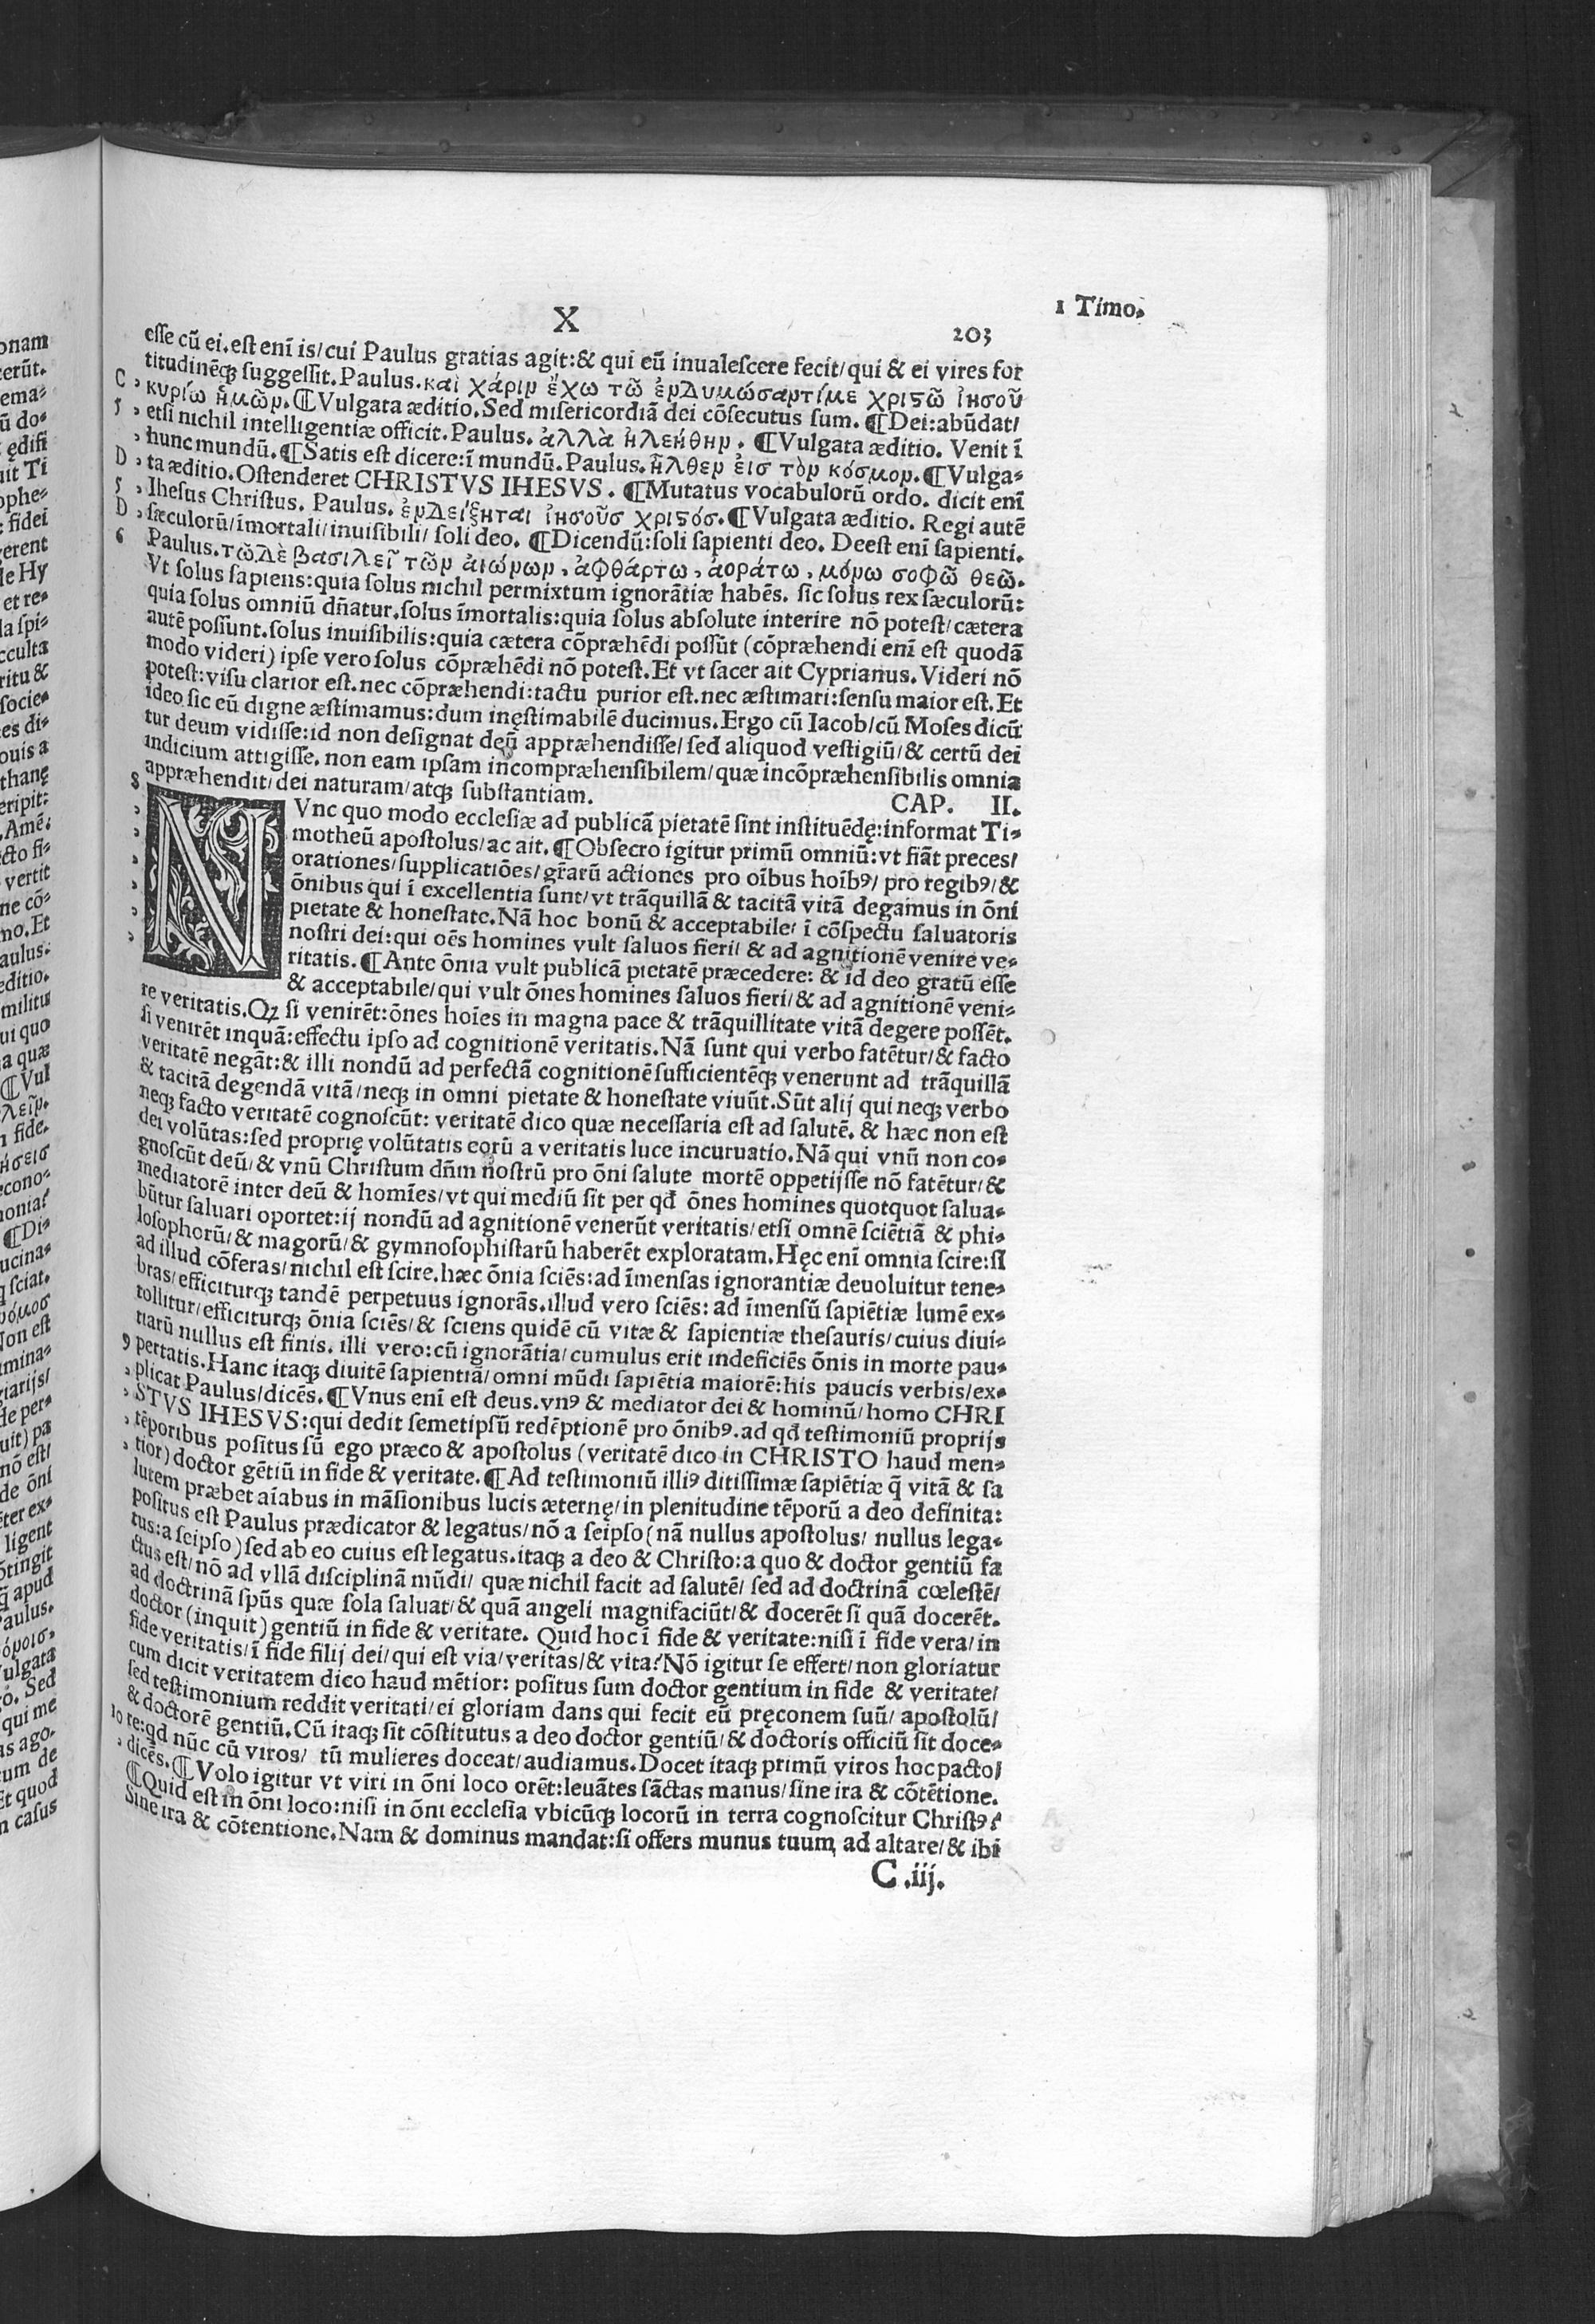 X
203
1 Timo.
esse cũ ei. est enĩ is/ cui Paulus gratias agit: & qui eũ inualescere fecit/ qui & ei vires for
titudinẽq; suggessit. Paulus. καὶ χάριν ἔχω τῶ ἐνδυναμώσαντίμε χριστῶ ἰησοῦ
C κυρίω ἡμῶν. ¶ Vulgata æditio. Sed misericordiã dei cõsecutus sum. ¶ Dei: abũdat/
5 etsi nichil intelligentiæ officit. Paulus. ἀλλὰ ἠλεήθην. ¶ Vulgata æditio. Venit ĩ
hunc mundũ. ¶ Satis est dicere: ĩ mundũ. Paulus. ἦλθεν εἰσ τὸν κόσμον. ¶ Vulga-
D ta æditio. Ostenderet CHRISTVS IHESVS. ¶ Mutatus vocabulorũ ordo. dicit enĩ
5 Ihesus Christus. Paulus. ἐνδείξηται ἰησοῦσ χριστόσ. ¶ Vulgata æditio. Regi autẽ
D sæculorũ/ ĩmortali/ inuisibili/ soli deo. ¶ Dicendũ: soli sapienti deo. Deest enĩ sapienti.
6 Paulus. τῶδὲ βασιλεῖ τῶν ἀιώνων, ἀφθάρτω, ἀοράτω, μόνω σοφῶ θεῶ.
Vt solus sapiens: quia solus nichil permixtum ignorãtiæ habẽs. sic solus rex sæculorũ:
quia solus omniũ dñatur. solus ĩmortalis: quia solus absolute interire nõ potest/ cætera
autẽ possunt. solus inuisibilis: quia cætera cõpræhẽdi possũt (cõpræhendi enĩ est quodã
modo videri) ipse vero solus cõpræhẽdi nõ potest. Et vt sacer ait Cyprianus. Videri nõ
potest: visu clarior est. nec cõpræhendi: tactu purior est. nec æstimari: sensu maior est. Et
ideo sic eũ digne æstimamus: dum inęstimabilẽ ducimus. Ergo cũ Iacob/ cũ Moses dicũ
tur deum vidisse: id non designat deũ appræhendisse/ sed aliquod vestigiũ/ & certũ dei
indicium attigisse. non eam ipsam incompræhensibilem/ quæ incõpræhensibilis omnia
appræhendit/ dei naturam/ atq; substantiam. CAP. II.
8 NVnc quo modo ecclesiæ ad publicã pietatẽ sint instituẽdę: informat Ti-
motheũ apostolus/ ac ait. ¶ Obsecro igitur primũ omniũ: vt fiãt preces/
orationes/ supplicatiões/ gr̃arũ actiones pro oĩbus hoĩbꝰ/ pro regibꝰ/ &
õnibus qui ĩ excellentia sunt/ vt trãquillã & tacitã vitã degamus in õni
pietate & honestate. Nã hoc bonũ & acceptabile/ ĩ cõspectu saluatoris
nostri dei: qui oẽs homines vult saluos fieri/ & ad agnitionẽ venire ve-
ritatis. ¶ Ante õnia vult publicã pietatẽ præcedere: & id deo gratũ esse
& acceptabile/ qui vult õnes homines saluos fieri/ & ad agnitionẽ veni-
re veritatis. Qꝫ si venirẽt: õnes hoĩes in magna pace & trãquillitate vitã degere possẽt.
si venirẽt inquã: effectu ipso ad cognitionẽ veritatis. Nã sunt qui verbo fatẽtur/ & facto
veritatẽ negãt: & illi nondũ ad perfectã cognitionẽ sufficientẽq; venerunt ad trãquillã
& tacitã degendã vitã/ neq; in omni pietate & honestate viuũt. Sũt alij qui neq; verbo
neq; facto veritatẽ cognoscũt: veritatẽ dico quæ necessaria est ad salutẽ. & hæc non est
dei volũtas: sed proprię volũtatis eorũ a veritatis luce incuruatio. Nã qui vnũ non co-
gnoscũt deũ/ & vnũ Christum dñm nostrũ pro õni salute mortẽ oppetijsse nõ fatẽtur/ &
mediatorẽ inter deũ & homĩes/ vt qui mediũ sit per qđ õnes homines quotquot salua-
bũtur saluari oportet: ij nondũ ad agnitionẽ venerũt veritatis/ etsi omnẽ sciẽtiã & phi-
losophorũ/ & magorũ/ & gymnosophistarũ haberẽt exploratam. Hęc enĩ omnia scire: si
ad illud cõferas/ nichil est scire. hæc õnia sciẽs: ad ĩmensas ignorantiæ deuoluitur tene-
bras/ efficiturq; tandẽ perpetuus ignorãs. illud vero sciẽs: ad ĩmensũ sapiẽtiæ lumẽ ex-
tollitur/ efficiturq; õnia sciẽs/ & sciens quidẽ cũ vitæ & sapientiæ thesauris/ cuius diui-
tiarũ nullus est finis. illi vero: cũ ignorãtia/ cumulus erit indeficiẽs õnis in morte pau-
9 pertatis. Hanc itaq; diuitẽ sapientiã/ omni mũdi sapiẽtia maiorẽ: his paucis verbis/ ex-
plicat Paulus/ dicẽs. ¶ Vnus enĩ est deus. vnꝰ & mediator dei & hominũ/ homo CHRI
STVS IHESVS: qui dedit semetipsũ redẽptionẽ pro õnibꝰ. ad qđ testimoniũ proprijs
tẽporibus positus sũ ego præco & apostolus (veritatẽ dico in CHRISTO haud men-
tior) doctor gẽtiũ in fide & veritate. ¶ Ad testimoniũ illiꝰ ditissimæ sapiẽtiæ q̃ vitã & sa
lutem præbet aĩabus in mãsionibus lucis æternę/ in plenitudine tẽporũ a deo definita:
positus est Paulus prædicator & legatus/ nõ a seipso (nã nullus apostolus/ nullus lega-
tus: a seipso) sed ab eo cuius est legatus. itaq; a deo & Christo: a quo & doctor gentiũ fa
ctus est/ nõ ad vllã disciplinã mũdi/ quæ nichil facit ad salutẽ/ sed ad doctrinã cœlestẽ/
ad doctrinã sp̃us quæ sola saluat/ & quã angeli magnifaciũt/ & docerẽt si quã docerẽt.
doctor (inquit) gentiũ in fide & veritate. Quid hoc ĩ fide & veritate: nisi ĩ fide vera/ in
fide veritatis/ ĩ fide filij dei/ qui est via/ veritas/ & vita? Nõ igitur se effert/ non gloriatur
cum dicit veritatem dico haud mẽtior: positus sum doctor gentium in fide & veritate/
sed testimonium reddit veritati/ ei gloriam dans qui fecit eũ pręconem suũ/ apostolũ/
& doctorẽ gentiũ. Cũ itaq; sit cõstitutus a deo doctor gentiũ/ & doctoris officiũ sit doce-
10 re: qđ nũc cũ viros/ tũ mulieres doceat/ audiamus. Docet itaq; primũ viros hoc pacto/
dicẽs. ¶ Volo igitur vt viri in õni loco orẽt: leuãtes sãctas manus/ sine ira & cõtẽtione.
¶ Quid est in õni loco: nisi in õni ecclesia vbicũq; locorũ in terra cognoscitur Christꝰ?
Sine ira & cõtentione. Nam & dominus mandat: si offers munus tuum ad altare/ & ibi
C .iij.